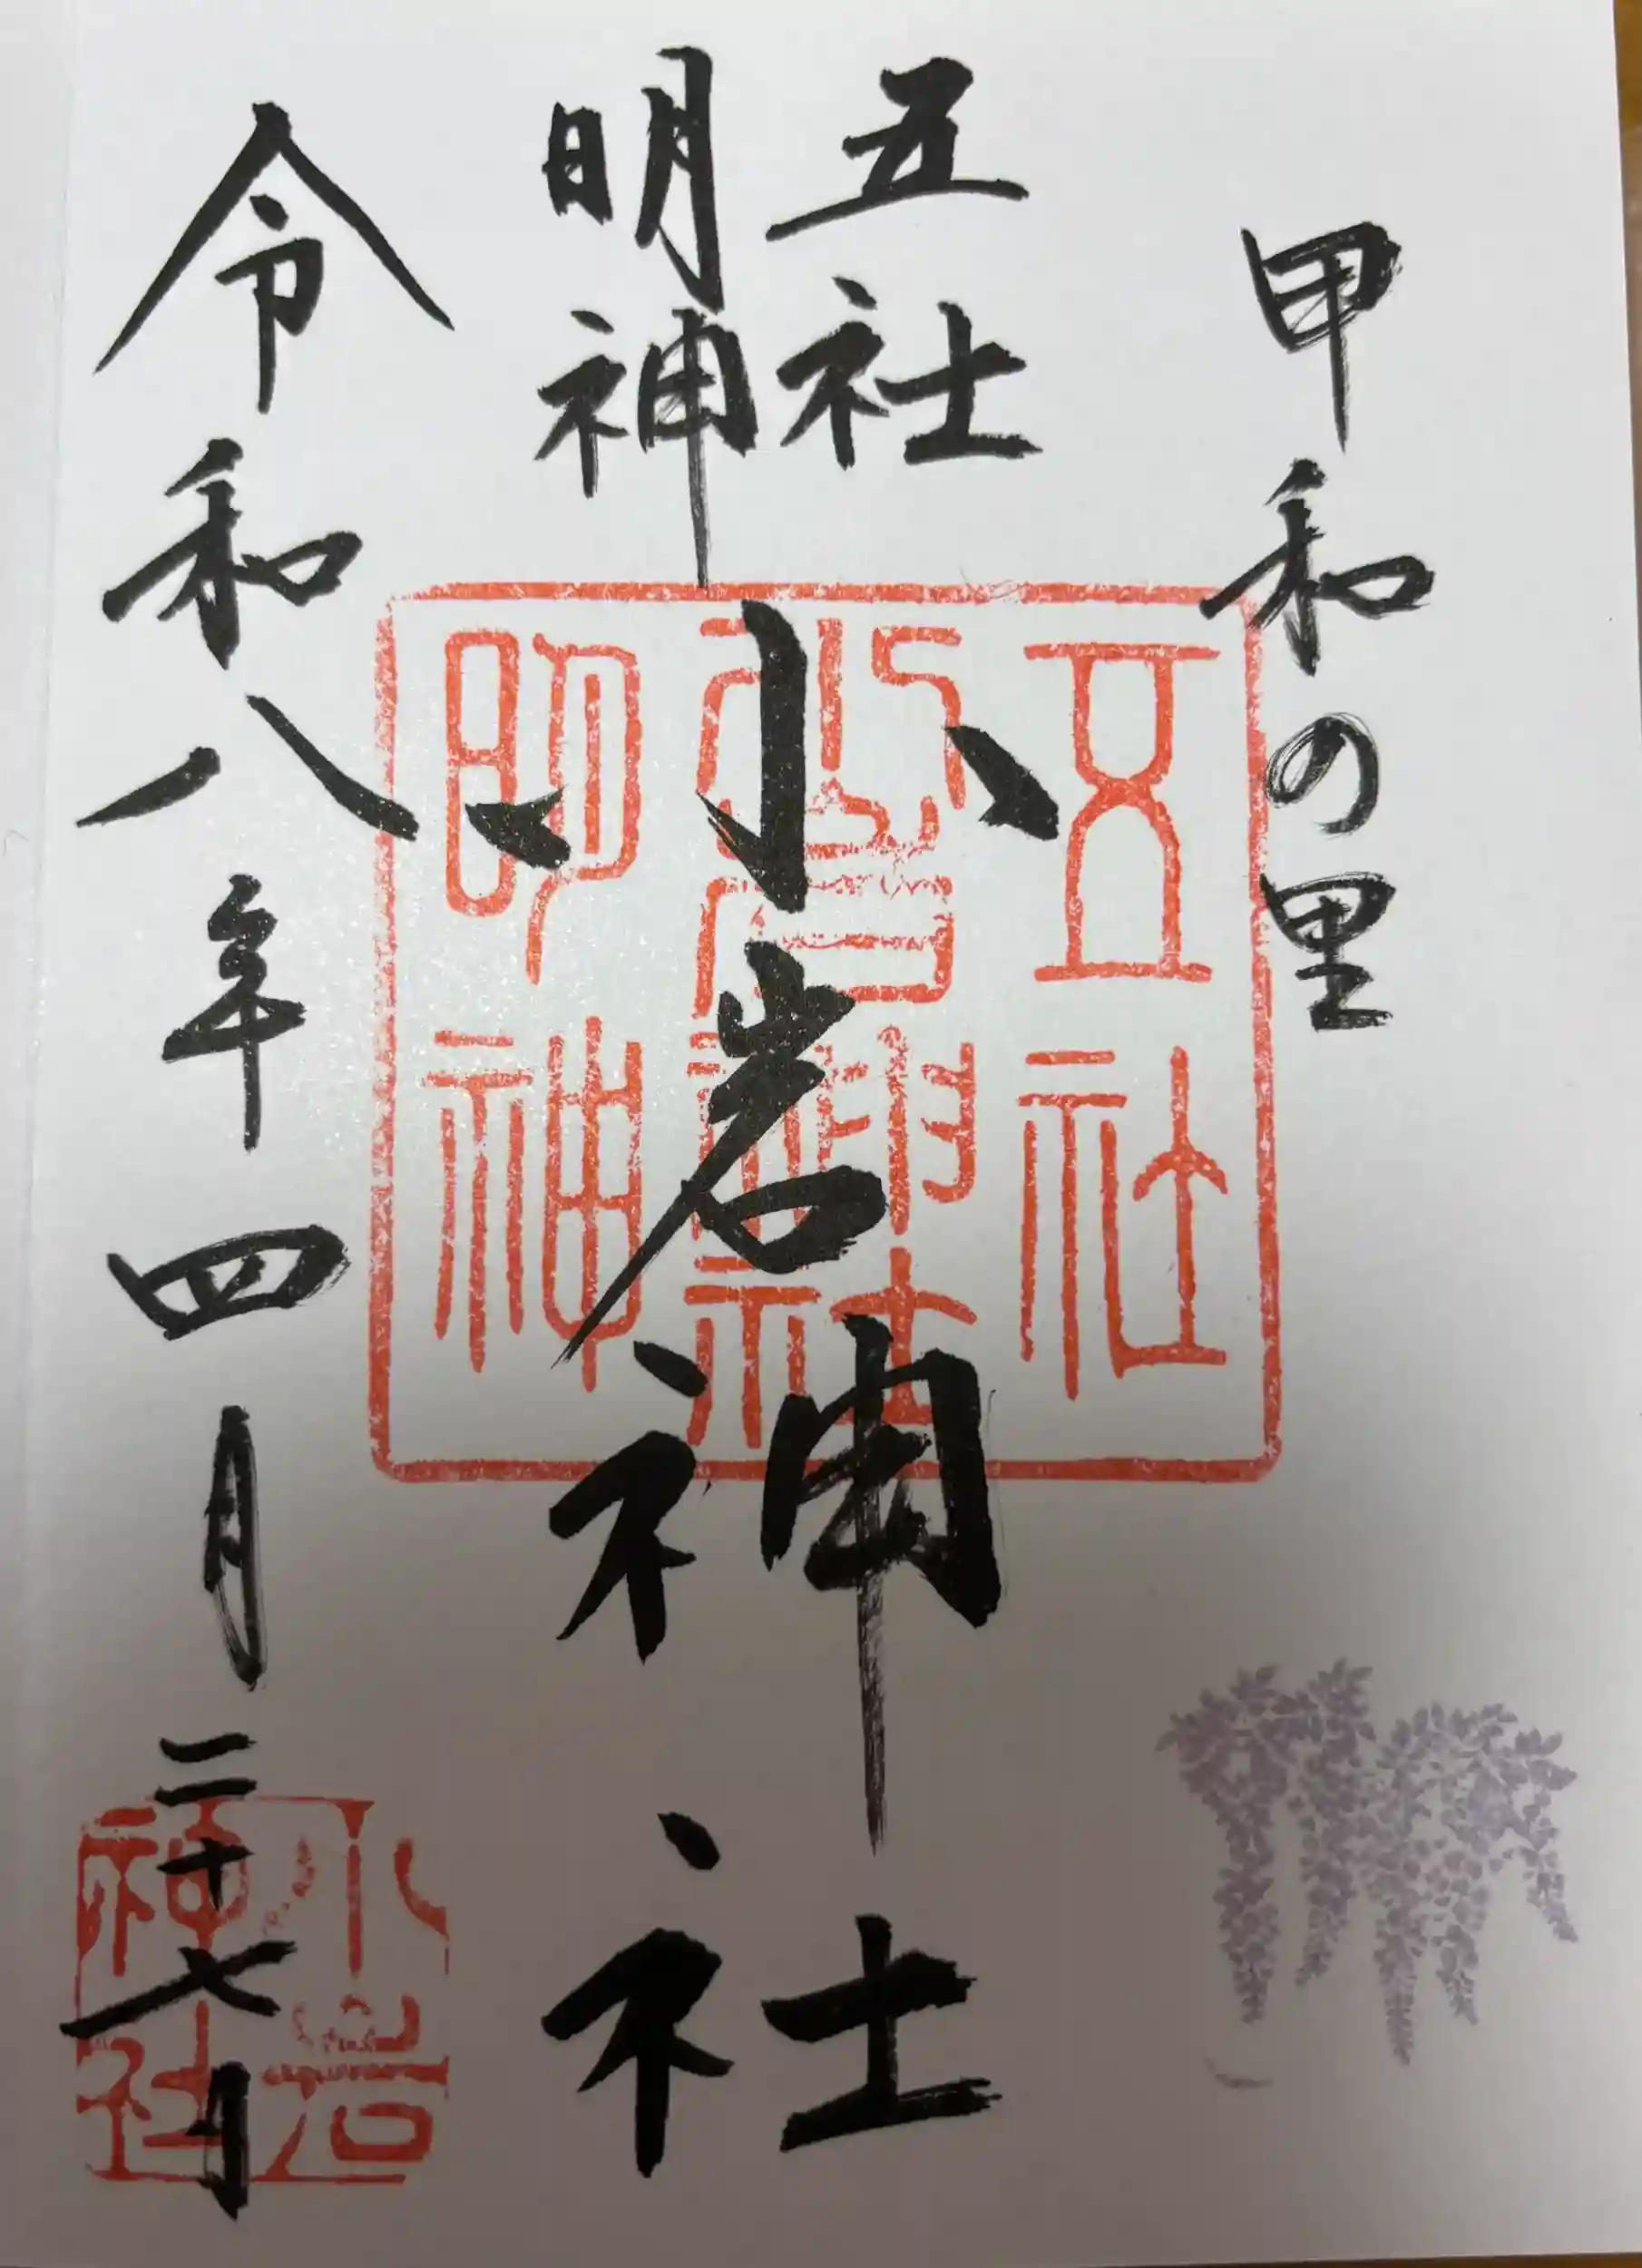 甲和の里
五社
明神
小岩神社
令和八年四月二十七日
五社
小岩神社
明神
小岩
神社